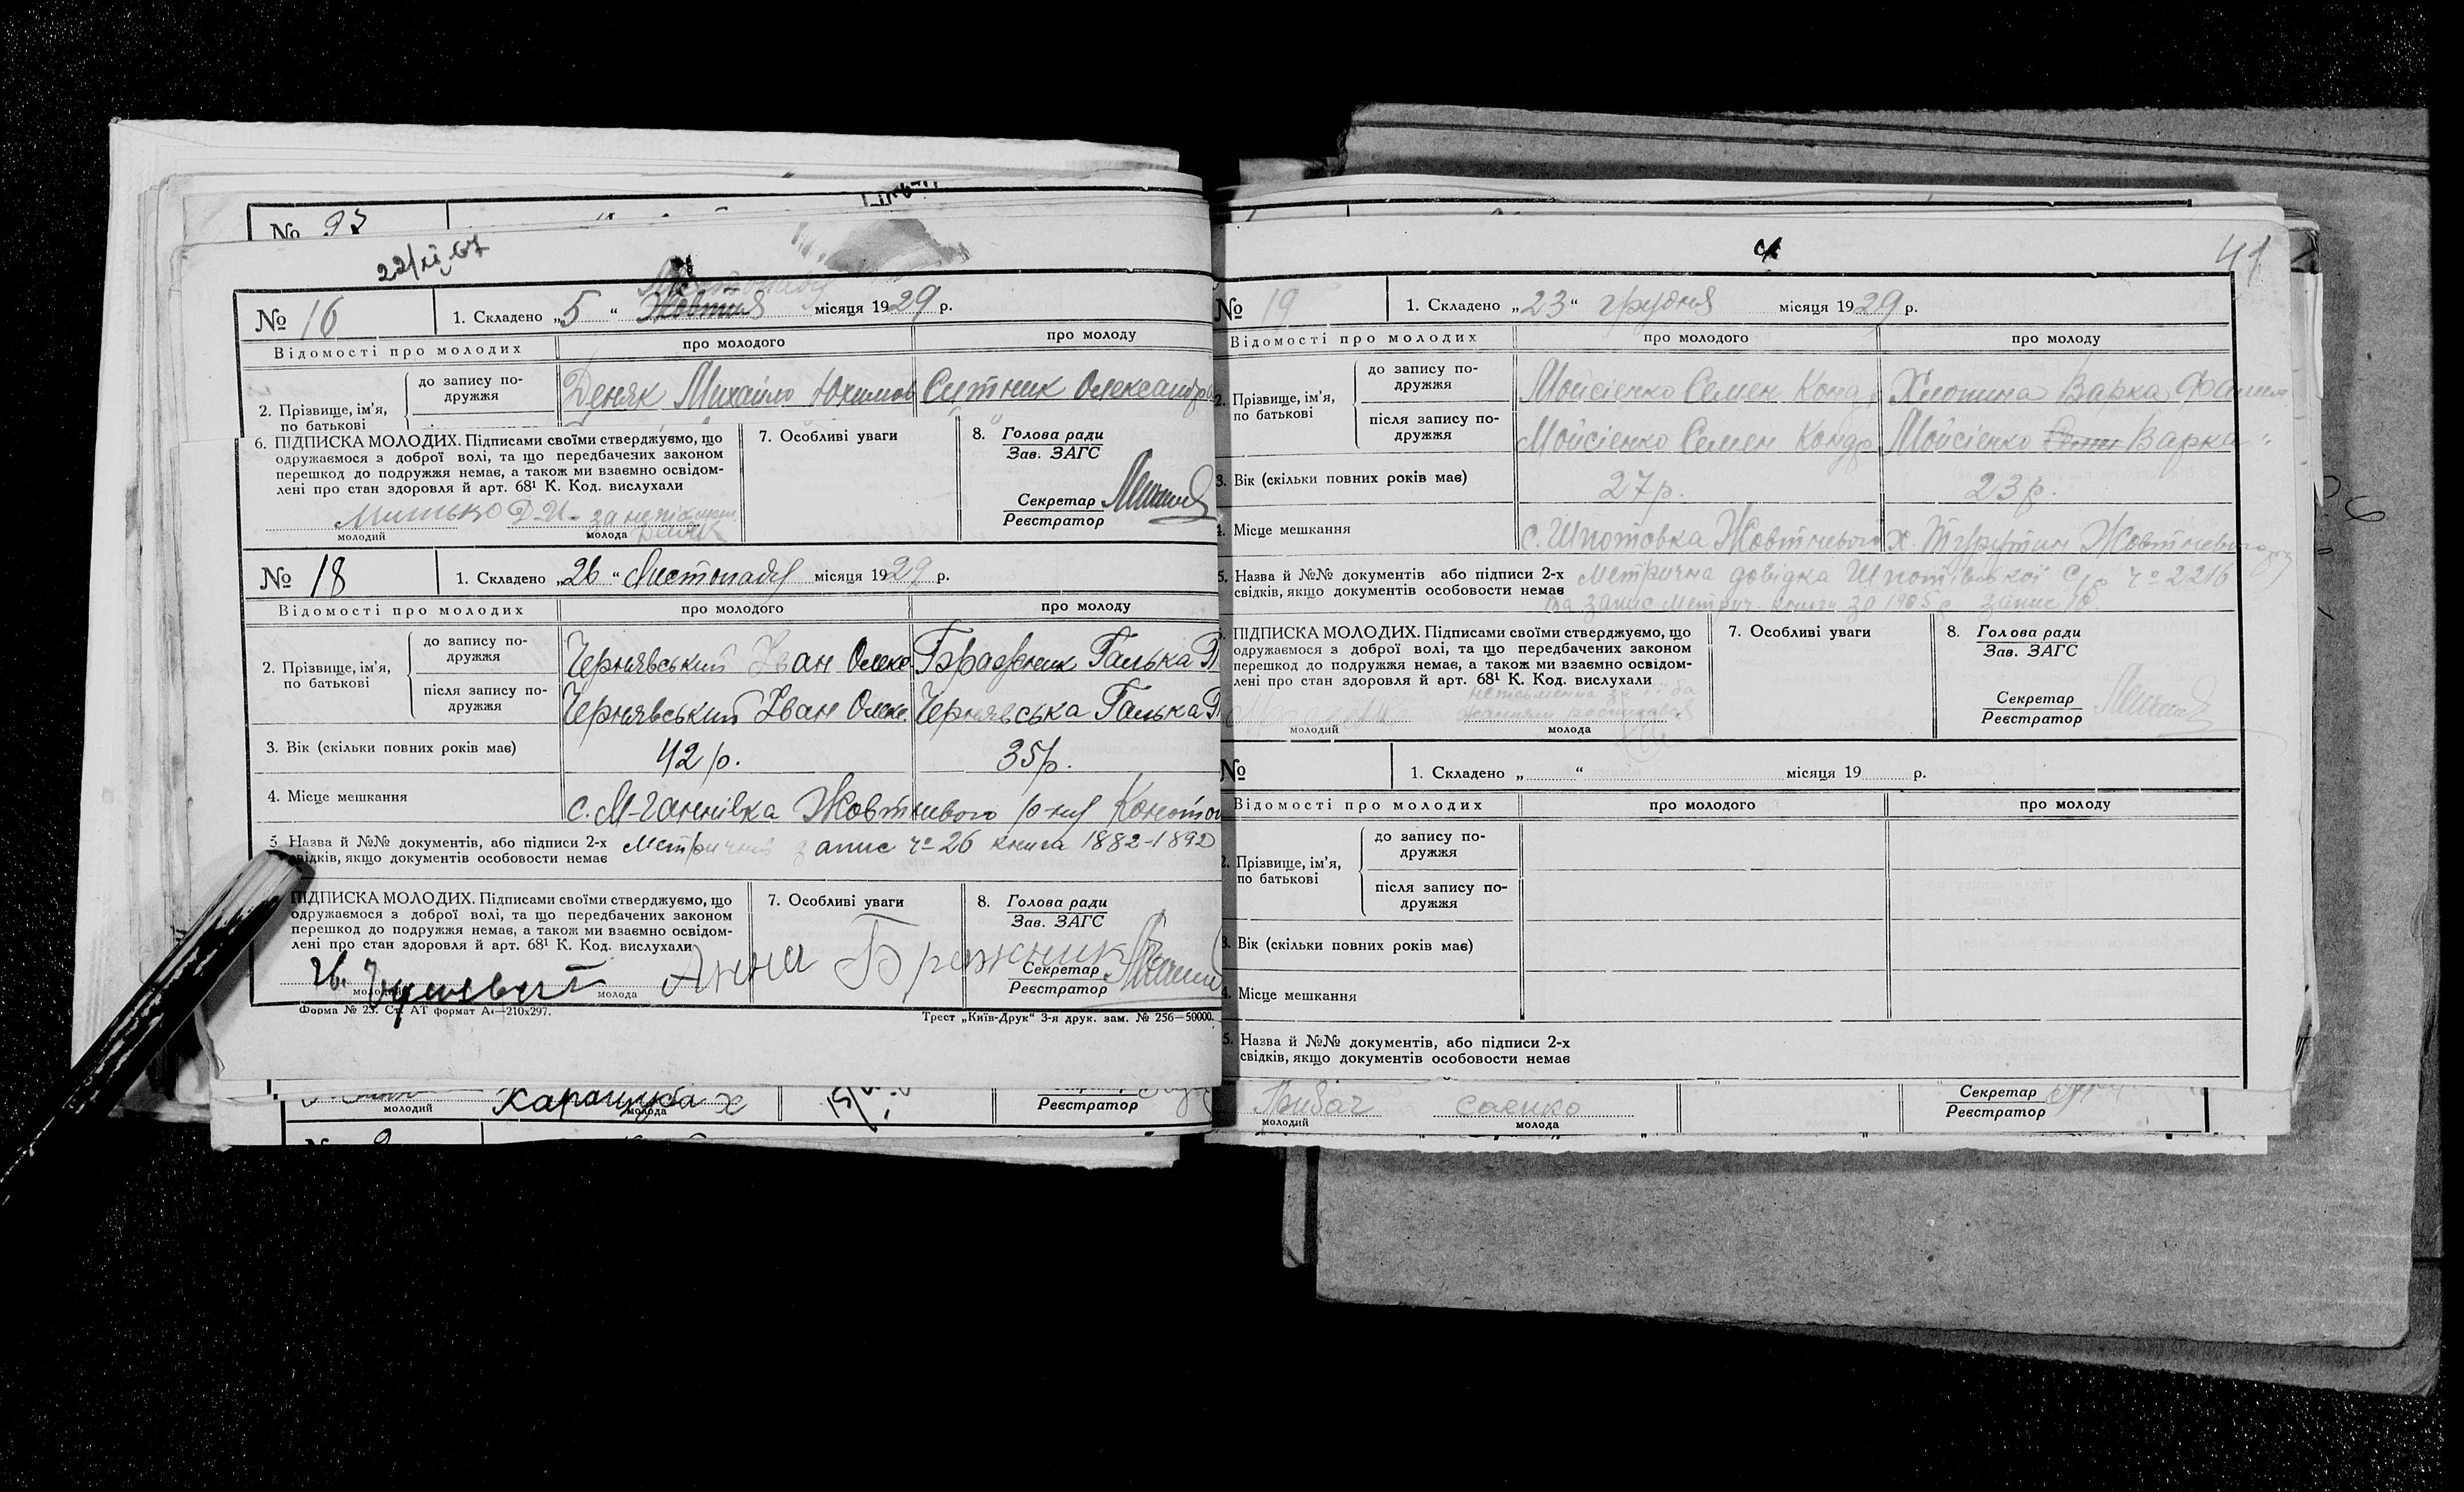 № 93
22/XI 67
№ 16
1. Складено „5“ Жовтня місяця 1929 р.
Листопаду
Відомості про молодих
про молодого
про молоду
2. Прізвище, ім'я, по батькові
до запису по-
дружжя
Деняк Михайло Юхимов
Ситник Олександра
6. ПІДПИСКА МОЛОДИХ. Підписами своїми стверджуємо, що
одружаємося з доброї волі, та що передбачених законом
перешкод до подружжя немає, а також ми взаємно освідом-
лені про стан здоров'я й арт. 68¹ К. Код. вислухали
7. Особливі уваги
8. Голова ради
Зав. ЗАГС
Секретар
Реєстратор
молодий
молода
№ 18
1. Складено „26“ Листопаду місяця 1929 р.
Відомості про молодих
про молодого
про молоду
2. Прізвище, ім'я,
по батькові
до запису по-
дружжя
Чернявський Іван Олекс.
Бражник Галька
після запису по-
дружжя
Чернявський Іван Олекс.
Чернявська Галька
3. Вік (скільки повних років має)
42 р.
35 р.
4. Місце мешкання
с. М-Ганнівка Жовтневого р-ну Конотоп
5. Назва й №№ документів, або підписи 2-х
свідків, якщо документів особовости немає
Метричний запис ч= 26 книга 1882-1892
ПІДПИСКА МОЛОДИХ. Підписами своїми стверджуємо, що
одружаємося з доброї волі, та що передбачених законом
перешкод до подружжя немає, а також ми взаємно освідом-
лені про стан здоров'я й арт. 68¹ К. Код. вислухали
7. Особливі уваги
8. Голова ради
Зав. ЗАГС
Секретар
Реєстратор
молодий
молода
Анна Бражник
Форма № 23. Ст. АТ формат А4—210х297.
Трест „Київ-Друк“ 3-я друк. зам. № 256—50000.
Карашуба Х
молодий
молода
Реєстратор
41
№ 19
1. Складено „23“ грудня місяця 1929 р.
Відомості про молодих
про молодого
про молоду
2. Прізвище, ім'я,
по батькові
до запису по-
дружжя
Мойсієнко Семен Конд.
Хлопина Варка
після запису по-
дружжя
Мойсієнко Семен Кондр.
Мойсієнко Варка "
3. Вік (скільки повних років має)
27 р.
23 р.
4. Місце мешкання
с. Шпотовка Жовтневого
х. Турутин Жовтневого
5. Назва й №№ документів або підписи 2-х
свідків, якщо документів особовости немає
Метрична довідка Шпотівської с/р ч= 2216
на запис метрич. книги за 1905 р запис 10
6. ПІДПИСКА МОЛОДИХ. Підписами своїми стверджуємо, що
одружаємося з доброї волі, та що передбачених законом
перешкод до подружжя немає, а також ми взаємно освідом-
лені про стан здоров'я й арт. 68¹ К. Код. вислухали
неписьменна за її ба
жанням росписався
7. Особливі уваги
8. Голова ради
Зав. ЗАГС
Секретар
Реєстратор
молодий
молода
№
1. Складено „ “ місяця 19 р.
Відомості про молодих
про молодого
про молоду
2. Прізвище, ім'я,
по батькові
до запису по-
дружжя
після запису по-
дружжя
3. Вік (скільки повних років має)
4. Місце мешкання
5. Назва й №№ документів, або підписи 2-х
свідків, якщо документів особовости немає
Грибач
Саєнко
молодий
молода
Секретар
Реєстратор